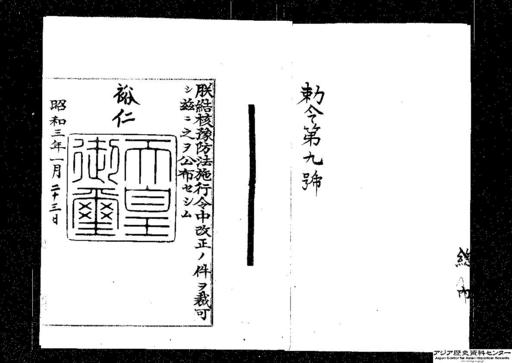 勅令第九號
總
内
朕結核豫防法施行令中改正ノ件ヲ裁可
シ茲ニ之ヲ公布セシム
裕仁
天皇
御璽
昭和三年一月二十三日
アジア歴史資料センター
Japan Center for Asian Historical Records